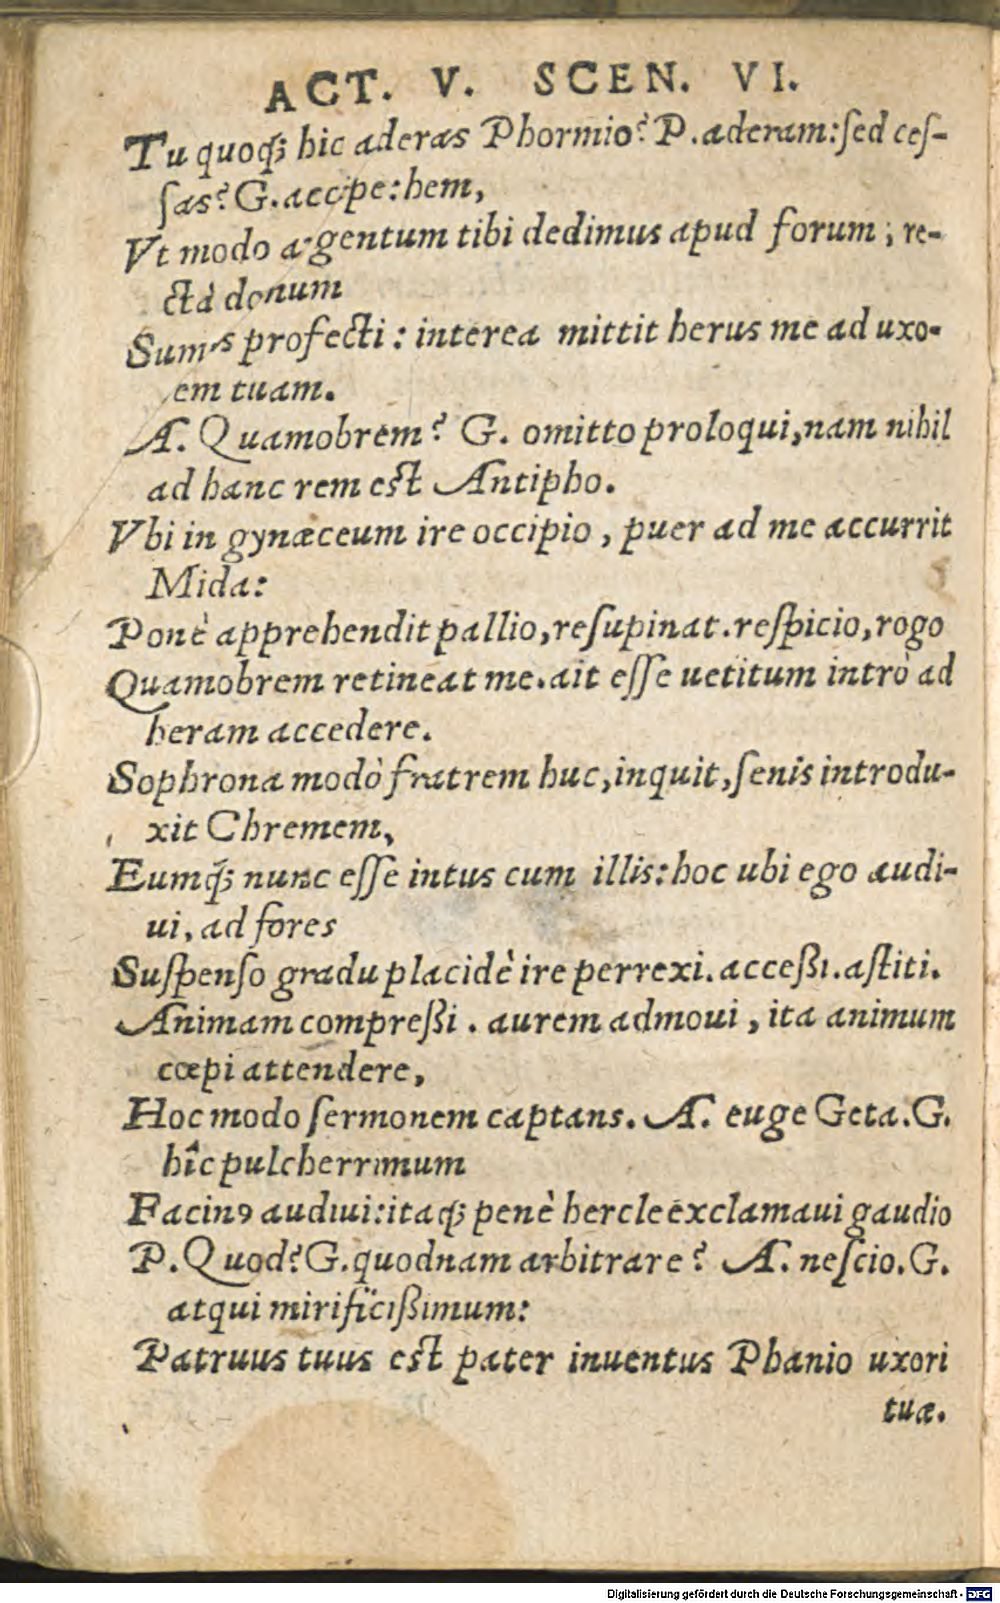 ACT. V. SCEN. VI.
Tu quoq; hic aderas Phormio? P. aderam: sed ces-
sas? G. accipe: hem,
Vt modo argentum tibi dedimus apud forum, re-
ctà domum
Sumus profecti: interea mittit herus me ad uxo-
rem tuam.
A. Quamobrem? G. omitto proloqui, nam nihil
ad hanc rem est Antipho.
Vbi in gynæceum ire occipio, puer ad me accurrit
Mida:
Ponè apprehendit pallio, resupinat. respicio, rogo
Quamobrem retineat me. ait esse uetitum intrò ad
heram accedere.
Sophrona modò fratrem huc, inquit, senis introdu-
xit Chremem,
Eumq; nunc esse intus cum illis: hoc ubi ego audi-
ui, ad fores
Suspenso gradu placidè ire perrexi. acceßi. astiti.
Animam compreßi. aurem admoui, ita animum
cœpi attendere,
Hoc modo sermonem captans. A. euge Geta. G.
hîc pulcherrimum
Facinꝰ audiui: itaq; penè hercle exclamaui gaudio
P. Quod? G. quodnam arbitrare? A. nescio. G.
atqui mirificißimum:
Patruus tuus est pater inuentus Phanio uxori
tuæ.
Digitalisierung gefördert durch die Deutsche Forschungsgemeinschaft - DFG